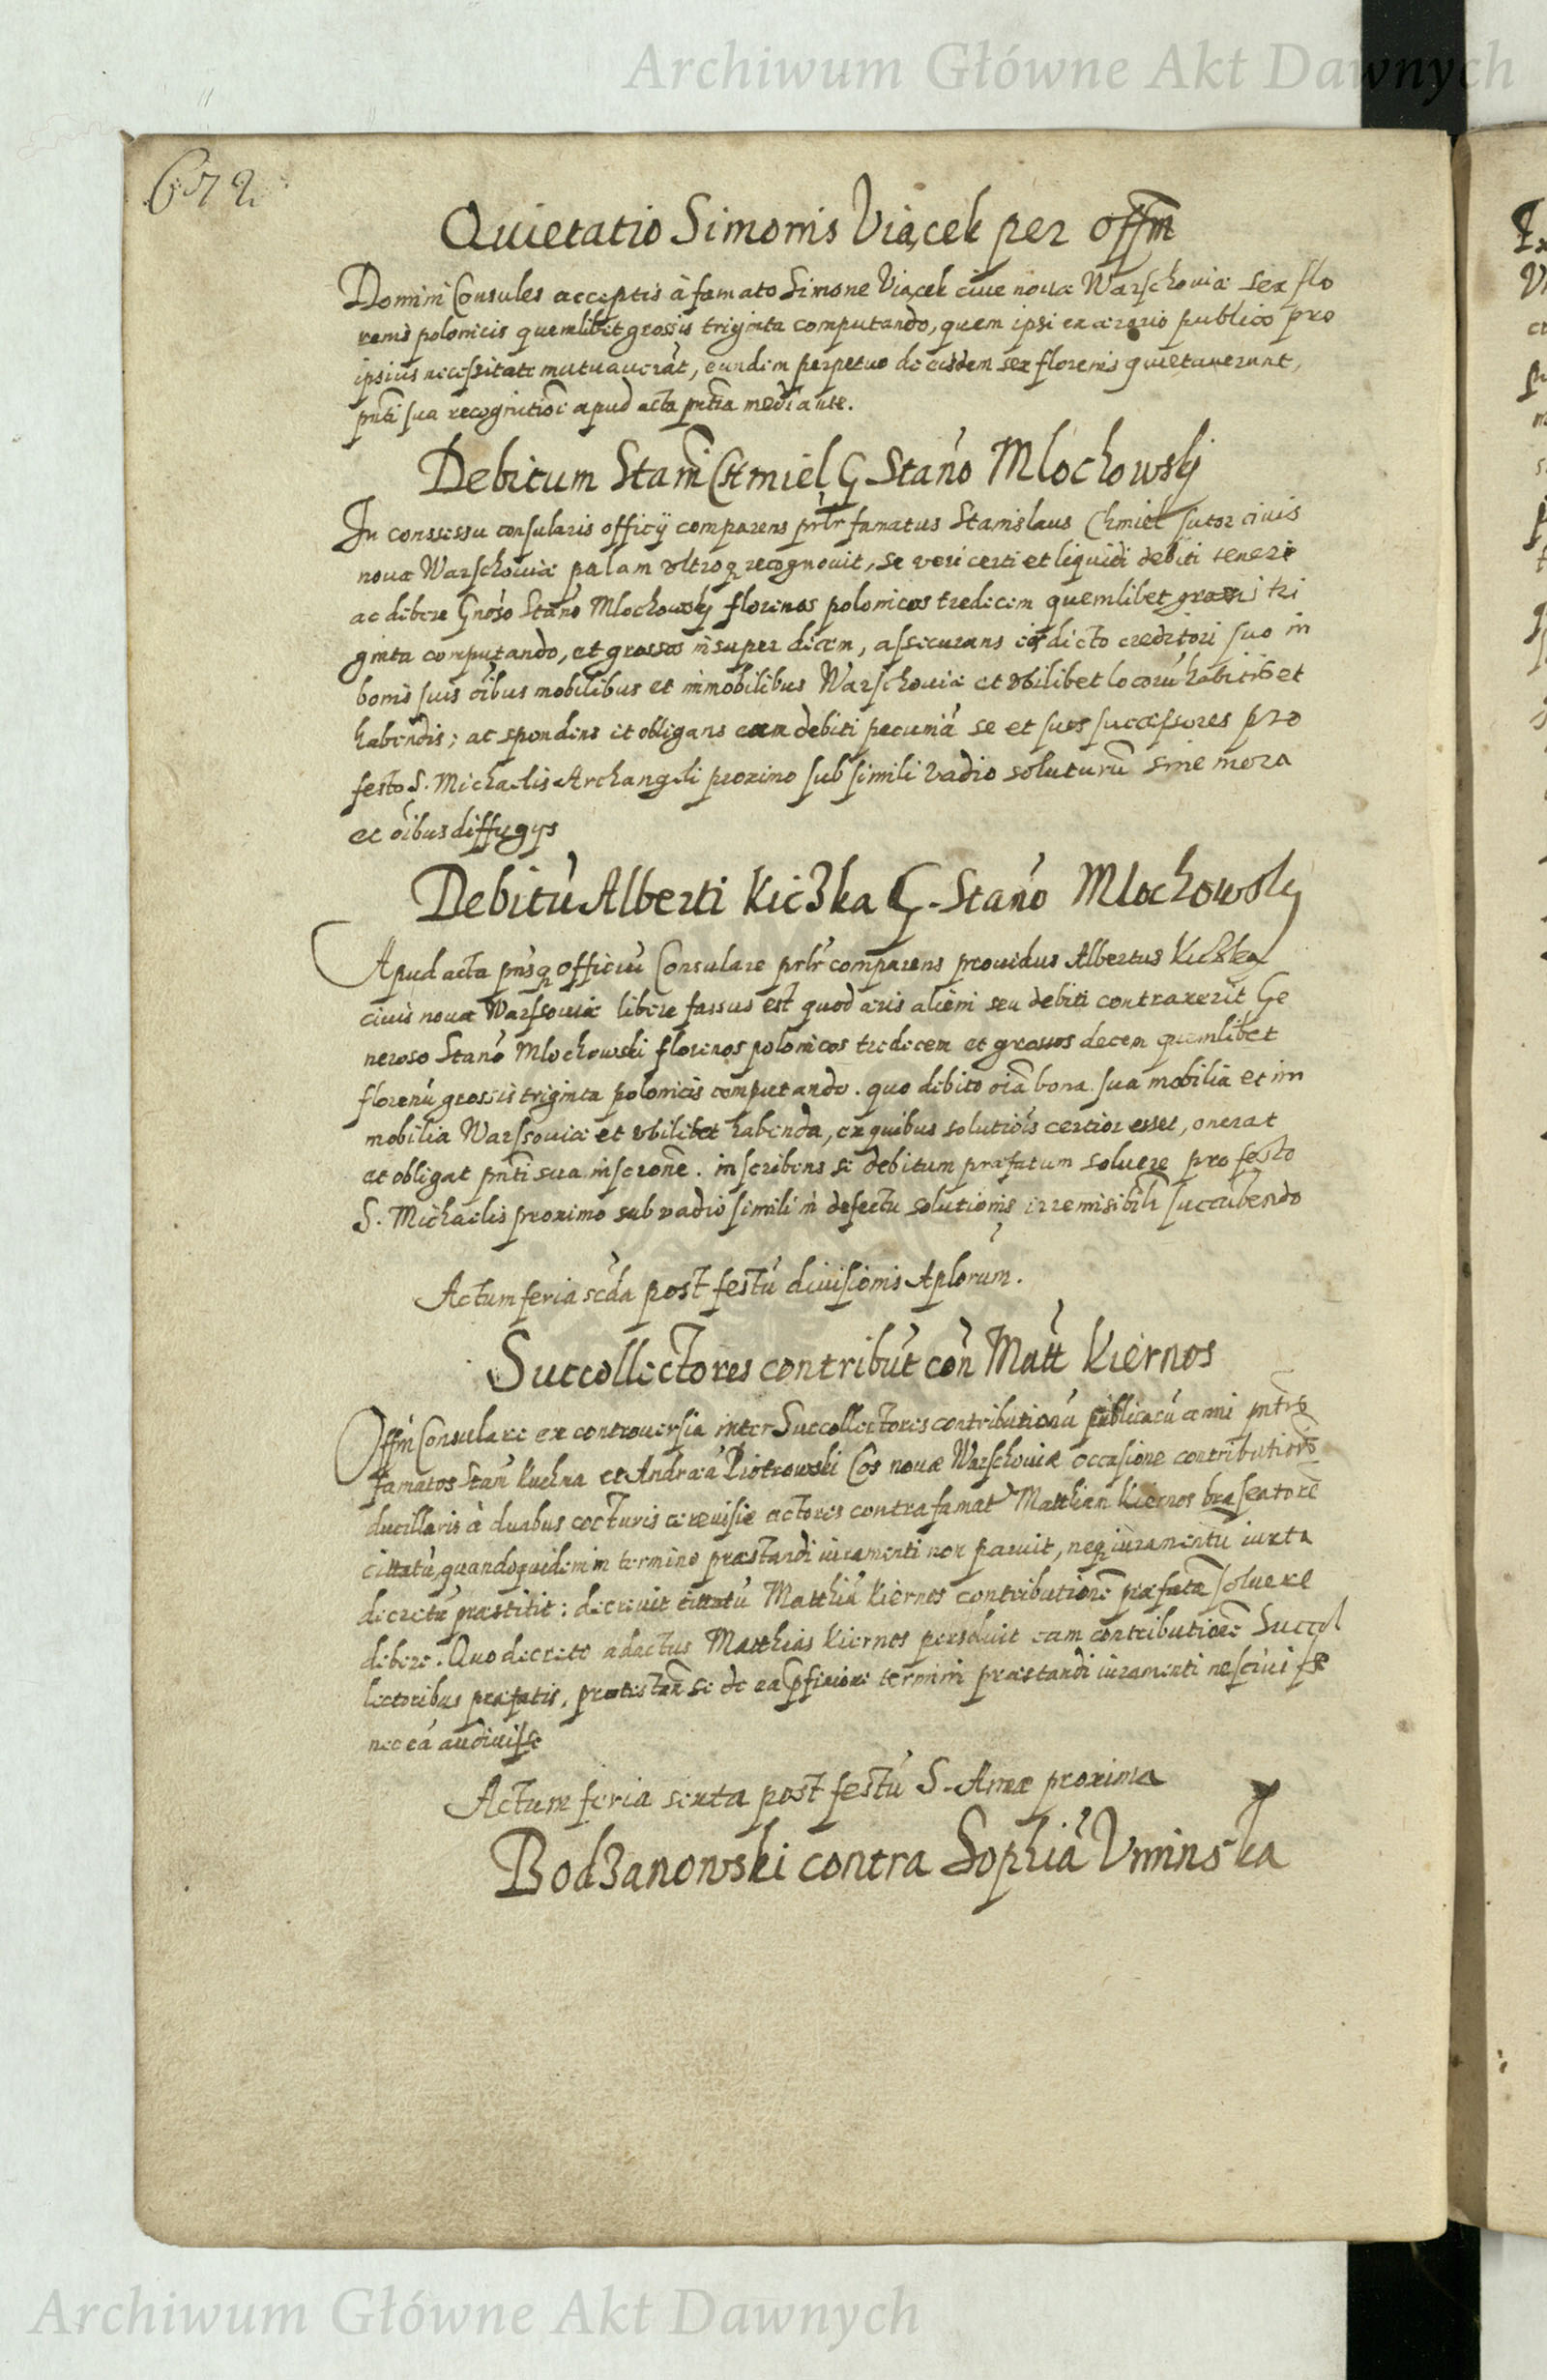 Archiwum Główne Akt Dawnych
672.
Quietatio Simonis Viącek per offm
Domini Consules acceptis à famato Simone Viącek ciue nouæ Warschouiæ sex flo
renis polonicis quemlibet grossis triginta computando, quem ipsi ex ærario publico pro
ipsius necessitate mutuauerāt, eundem perpetuo de eisdem sex florenis quietauerunt,
pnti sua recognitioē apud acta pntia mediante.
Debitum Stani Chmiel G Stano Mlochowsky
In consessu consularis officij comparens prlr famatus Stanislaus Chmiel sutor ciuis
nouæ Warschouiæ palam vltroq recognouit, se veri certi et liquidi debiti teneri
ac debere Gnoso Stano Mlochowsky florenos polonicos tredecim quemlibet grossis tri
ginta computando, et grossos insuper decem, assecurans dicto creditori suo in
bonis suis oibus mobilibus et immobilibus Warschouiæ et vbilibet locorū habitis et
habendis; ac spondens et obligans eam debiti pecuniā se et suos successores pro
festo S. Michaelis Archangeli proximo sub simili vadio soluturū sine mora
et oibus diffugijs
Debitū Alberti Kiczka G. Stano Mlochowsky
Apud acta pnsq officiū Consulare prlr comparens prouidus Albertus Kiczka
ciuis nouæ Warsouiæ libere fassus est quod æris alieni seu debiti contraxerit Ge
neroso Stano Mlochowski florenos polonicos tredecem et grossos decem quemlibet
florenū grossis triginta polonicis computando. quo debito oia bona sua mobilia et im
mobilia Warsouiæ et vbilibet habenda, ex quibus solutiois certior esset, onerat
et obligat pnti sua inscrione. inscribens se debitum præfatum soluere pro festo
S. Michaelis proximo sub vadio simili in defectu solutionis irremisibilr succubendo
Actum feria scda post festū diuisionis Aplorum.
Succollectores contribut con Matt Kiernos
Offm Consulare ex controuersia inter Succollectores contributionū publicarū anni pntis
famatos Stan Kuchna et Andreā Piotrowski Cos nouæ Warschouiæ occasione contributiois
ducillaris à duabus cocturis cereuisie actores contra famat Matthian Kiernos braseatorē
cittatū, quandoquidem in termino præstandi iuramenti non paruit, neq iuramentū iuxta
decretū præstitit: decreuit cittatū Matthiā Kiernos contributionē præfatā soluere
debere. Quo decreto adactus Matthias Kiernos persoluit eam contributionē Succol
lectoribus præfatis, protestans se de ea pfixione termini præstandi iuramenti nesciuisse
nec eā audiuisse
Actum feria sexta post festū S. Annæ proxima
Bodzanowski contra Sophiā Vminska
Archiwum Główne Akt Dawnych